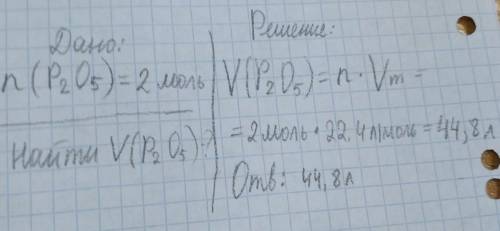 Дано:
n(P₂O₅)=2 моль
Найти V(P₂O₅)?
Решение:
V(P₂O₅)=n·Vm=
=2моль·22.4л/моль=44,8л
Отв: 44,8л